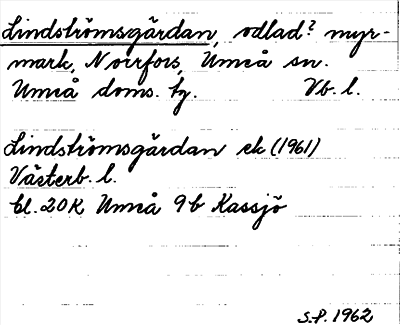 Lindströmsgärdan, odlad? myr-
mark, Norrfors, Umeå sn.
Umeå doms. tg. Vb. l.
Lindströmsgärdan ek (1961)
Västerb. l.
bl. 20K Umeå 9b Kassjö
S.P. 1962